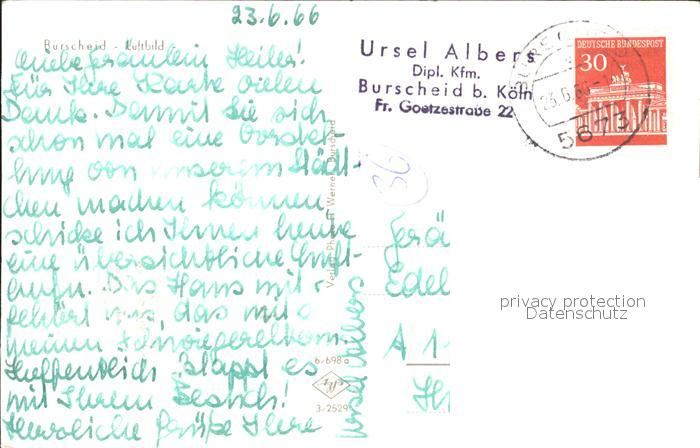 23.6.66
Burscheid - Luftbild
Liebe Fräulein Heiler!
für Ihre Karte vielen
Dank. Damit Sie sich
schon mal eine Vorstel-
lung von unserem Städt-
chen machen können,
schicke ich Ihnen heute
eine übersichtliche Luft-
aufn. Das Haus mit
gehört uns, das mit
meinen Schwiegereltern.
Hoffentlich klappt es
mit Ihrem Besuch!
Herzliche Grüße Ihre
Ursel Albers
Ursel Albers
Dipl. Kfm.
Burscheid b. Köln
Fr. Goetzestraße 22
DEUTSCHE BUNDESPOST
30
23.6.
5673
36
Verlag Photo H. Werner, Burscheid
6/698a
3/2529
Frä
Edel
A 1
privacy protection
Datenschutz